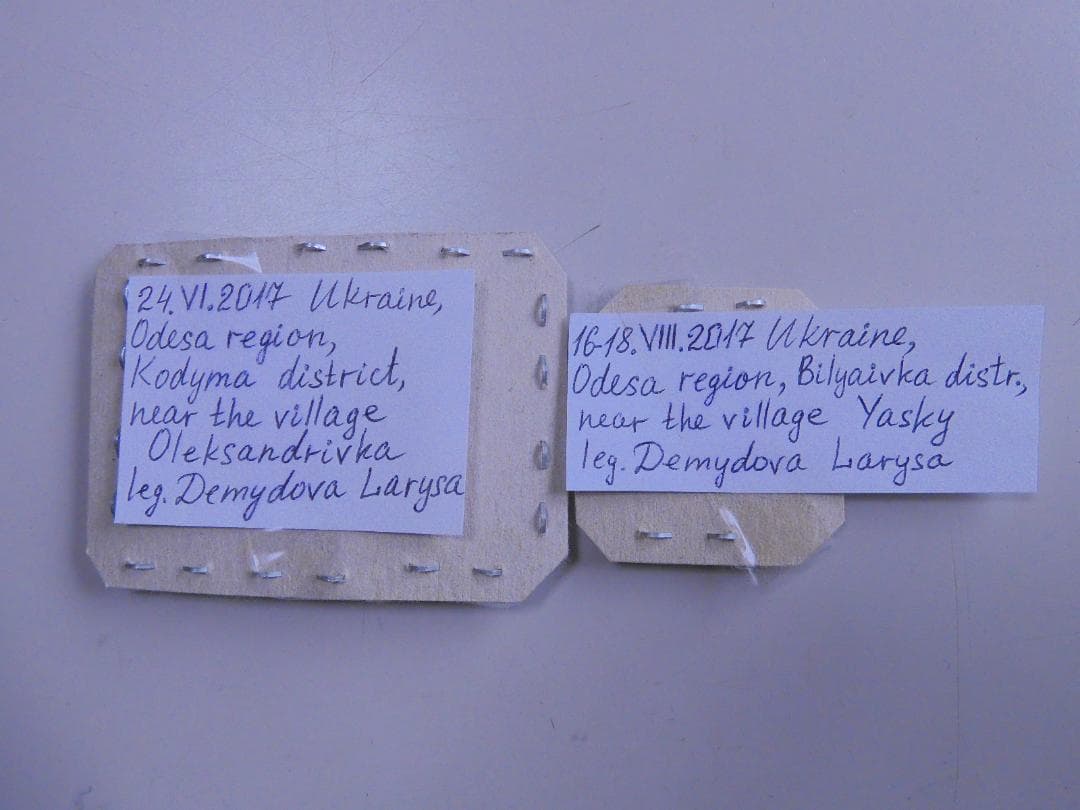 24.VI.2017 Ukraine,
Odesa region,
Kodyma district,
near the village
Oleksandrivka
leg. Demydova Larysa
16-18.VIII.2017 Ukraine,
Odesa region, Bilyaivka distr.,
near the village Yasky
leg. Demydova Larysa